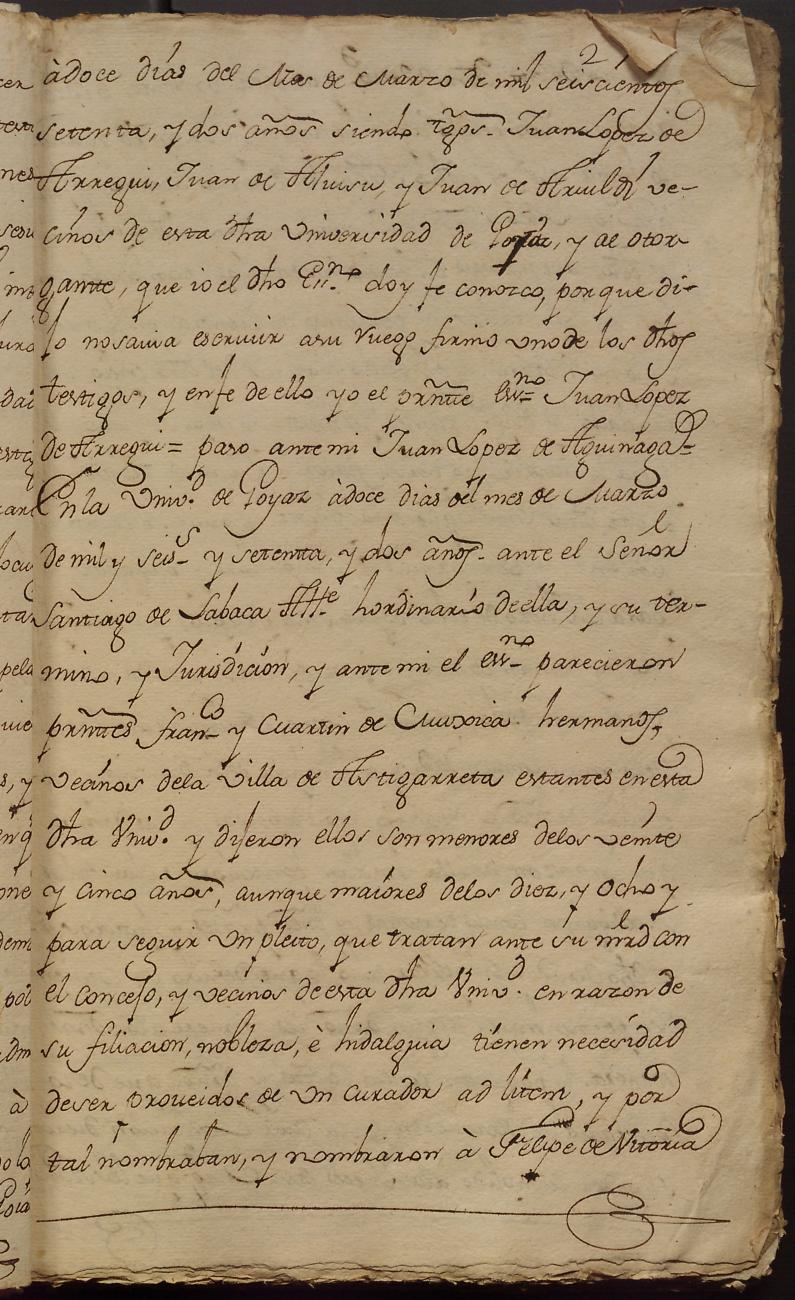 2
à doce días del Mes de Marzo de mil seiscientos
setenta, y dos años siendo tgos. Juan Lopez de
Arregui, Juan de Aluisu, y Juan de ve-
cinos de esta dha Universidad de y al otor-
gante, que io el dho Essno doy fe conozco, porque di-
Jo no sauia escriuir a su ruego firmo uno de los dhos
testigos, y en fe de ello yo el prnte essno Juan Lopez
de Arregui = paso ante mi Juan Lopez de Aguinaga
En la Univd. de Goyaz à doce dias del mes de Marzo
de mil y seiss y setentta, y dos años. ante el Señor
Santiago de Sabaca Allte hordinario de ella, y su ter-
mino, y Jurisdicion, y ante mi el essno parecieron
prntes franco y Martin de Muxica hermanos,
vecinos dela villa de Astigarreta estantes en esta
dha Univd. y dijeron ellos son menores delos veinte
y cinco años, aunque maiores delos diez, y ocho y
para seguir un pleito, que tratan ante su mrd con
el concejo, y vecinos de esta dha Univd. en razon de
su filiacion, nobleza, è hidalguia tienen necesidad
de ser proueidos de un curador ad litem, y por
tal nombraban, y nombraron à Felipe de Vitoria